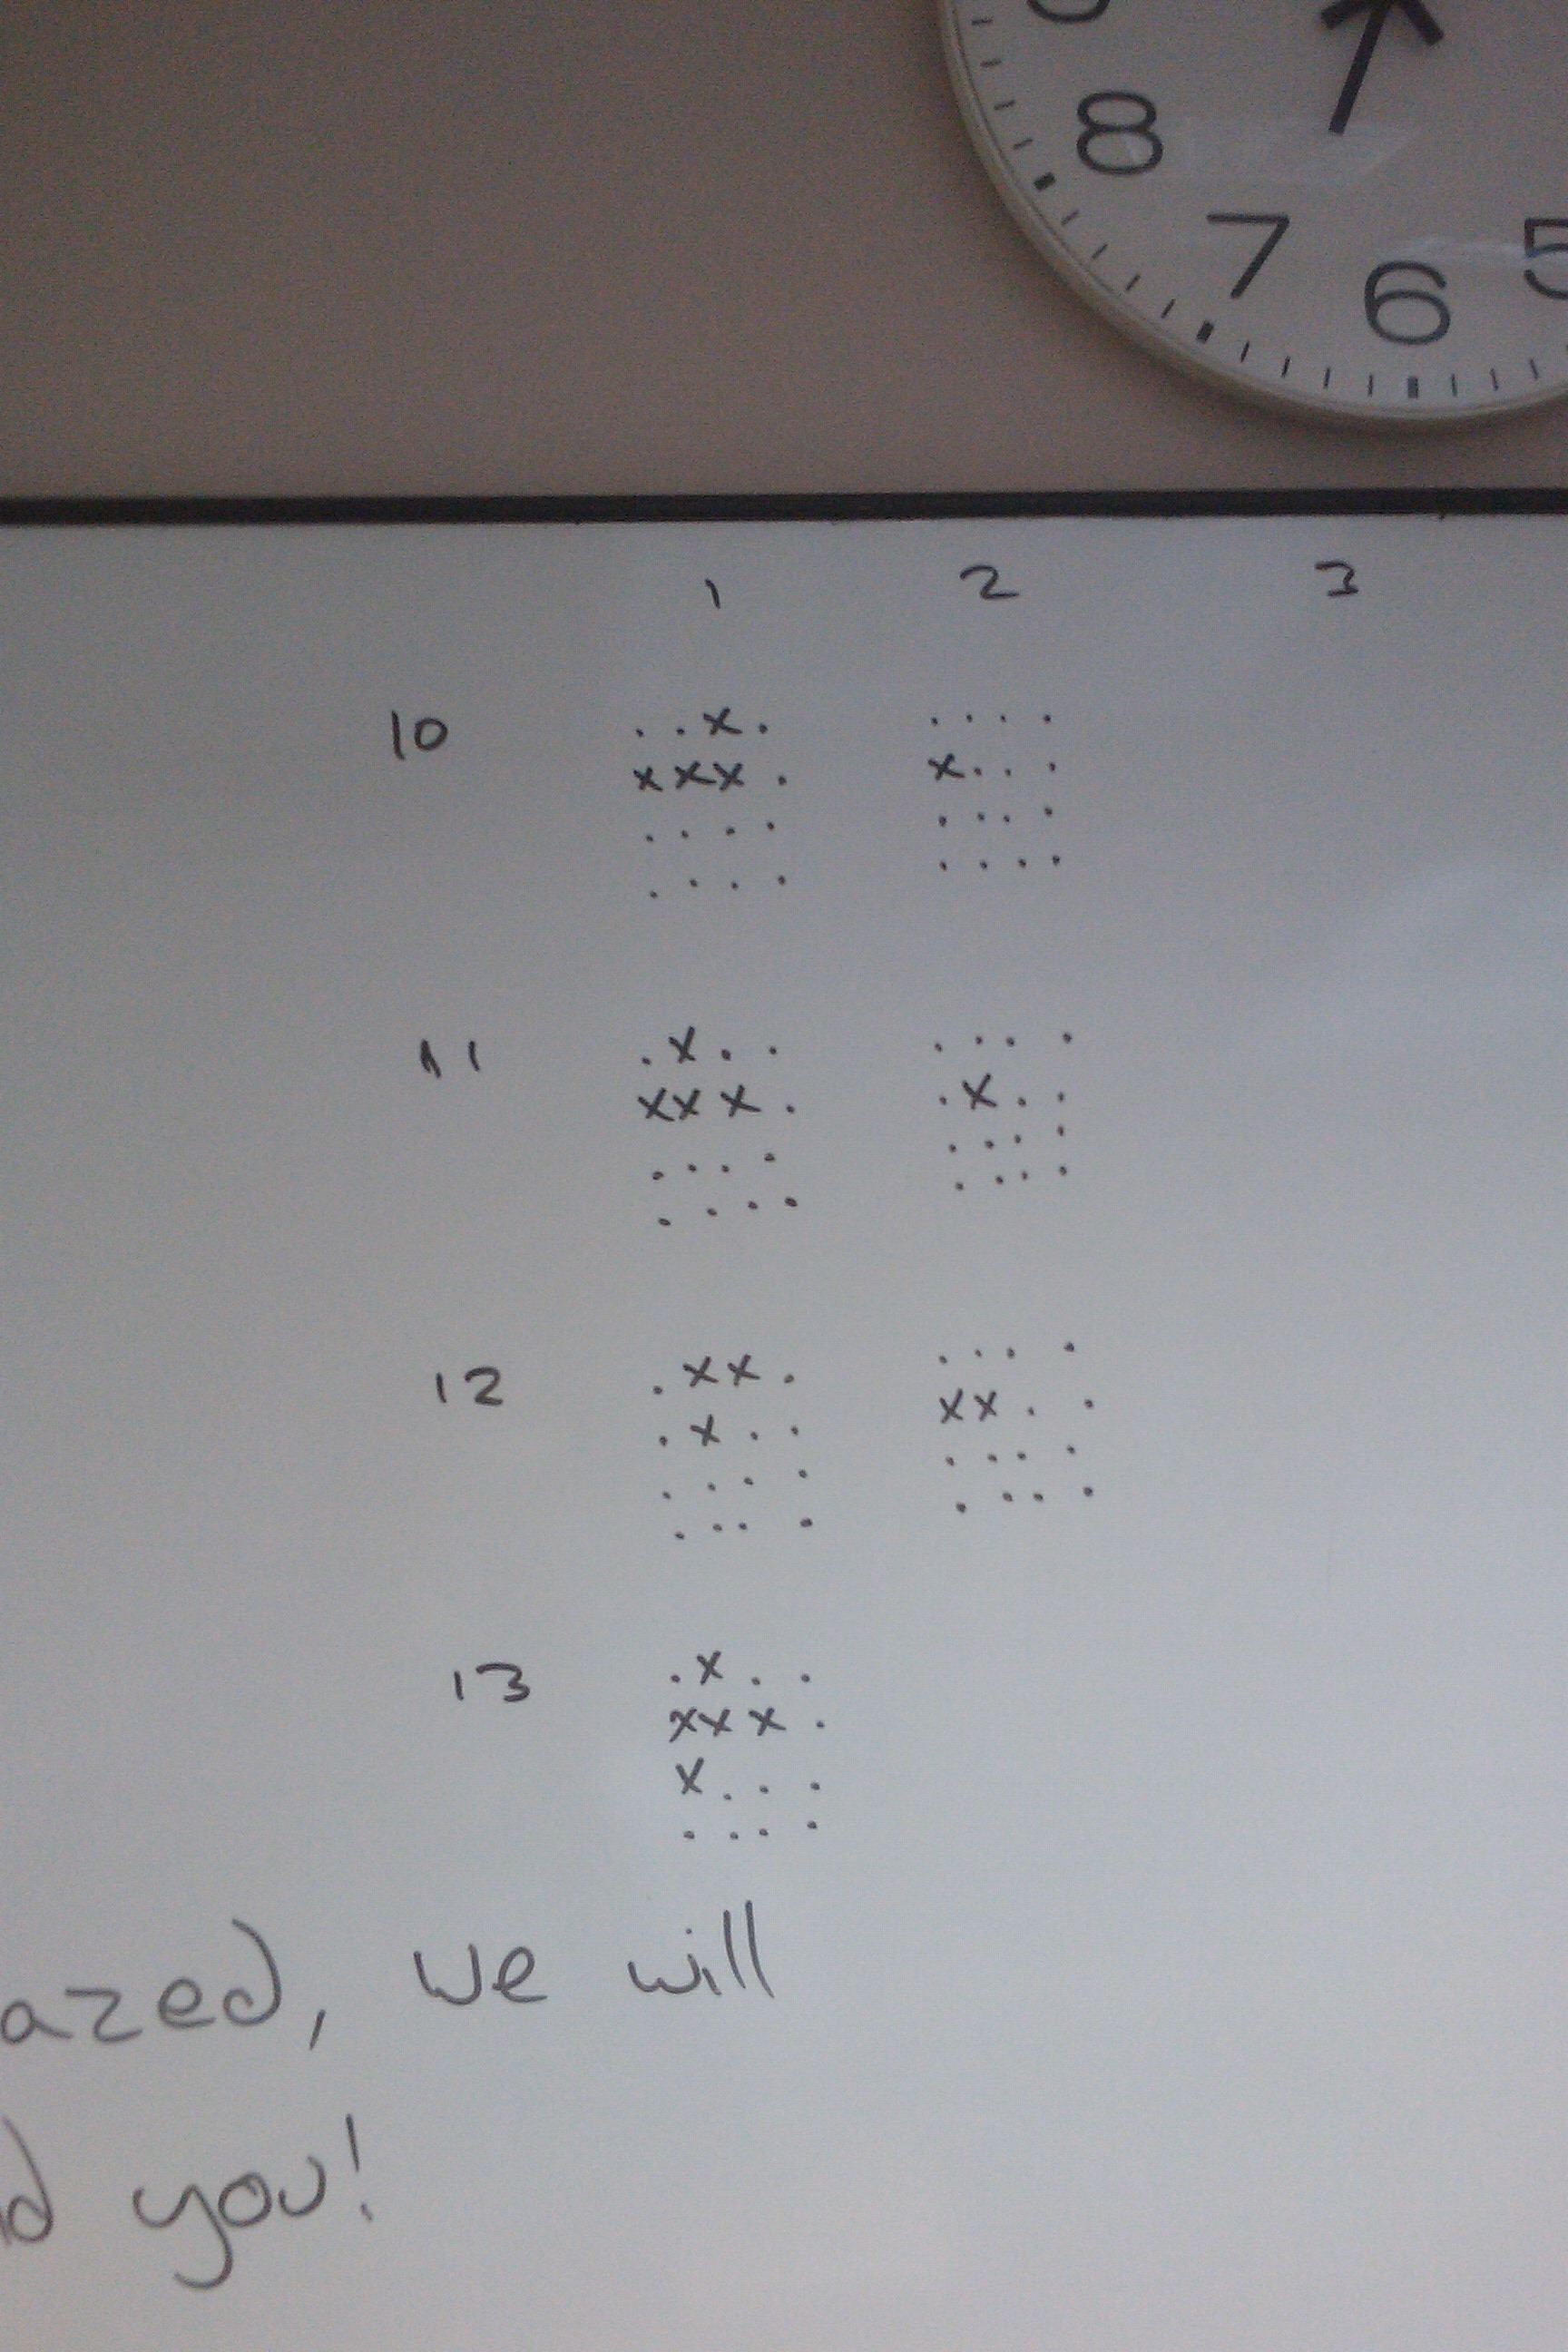 8
7 6 5
1 2 3
10 . . x . . . . .
x x x . x . . .
. . . . . . . .
. . . . . . . .
11 . x . . . . . .
x x x . . x . .
. . . . . . . .
. . . . . . . .
12 . x x . . . . .
. x . . x x . .
. . . . . . . .
. . . . . . . .
13 . x . .
x x x .
x . . .
. . . .
azed, we will
d you!